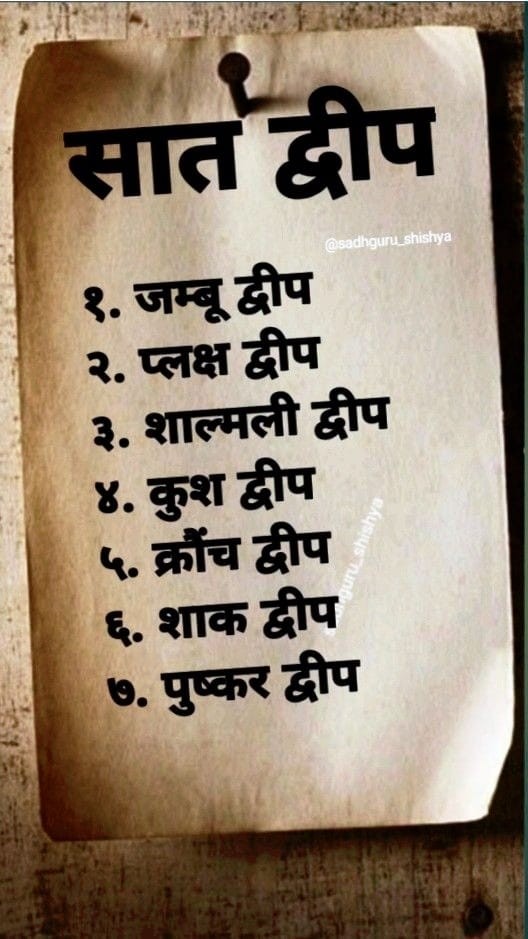 सात द्वीप
@sadhguru_shishya
१. जम्बू द्वीप
२. प्लक्ष द्वीप
३. शाल्मली द्वीप
४. कुश द्वीप
५. क्रौंच द्वीप
६. शाक द्वीप
७. पुष्कर द्वीप